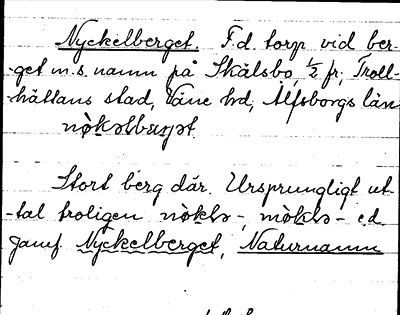 Nyckelberget. F.d. torp vid ber-
-get m.s. namn på Skälsbo, 1/2 fr, Troll-
-hättans stad, Väne hd, Älfsborgs län
Stort berg där. Ursprungligt ut-
-tal troligen nòkls-, mòkls- e.d.
Jämf. Nyckelberget, Naturnamn